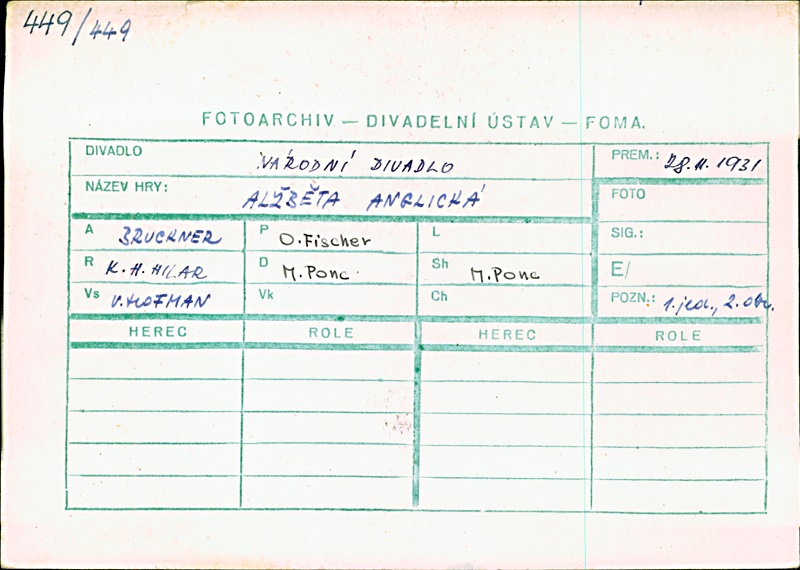 449/449
FOTOARCHIV — DIVADELNÍ ÚSTAV — FOMA.
DIVADLO NÁRODNÍ DIVADLO PREM.: 28.11.1931
NÁZEV HRY: ALŽBĚTA ANGLICKÁ FOTO
A BRUCKNER P O.Fischer L SIG.:
R K.H.HILAR D M.Ponc Sh M.Ponc E/
Vs V.HOFMAN Vk Ch POZN.: 1.jed., 2.obr.
HEREC ROLE HEREC ROLE